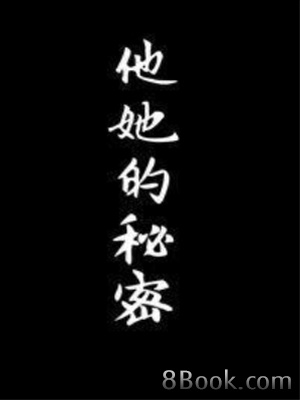 他她的秘密
8Book.com